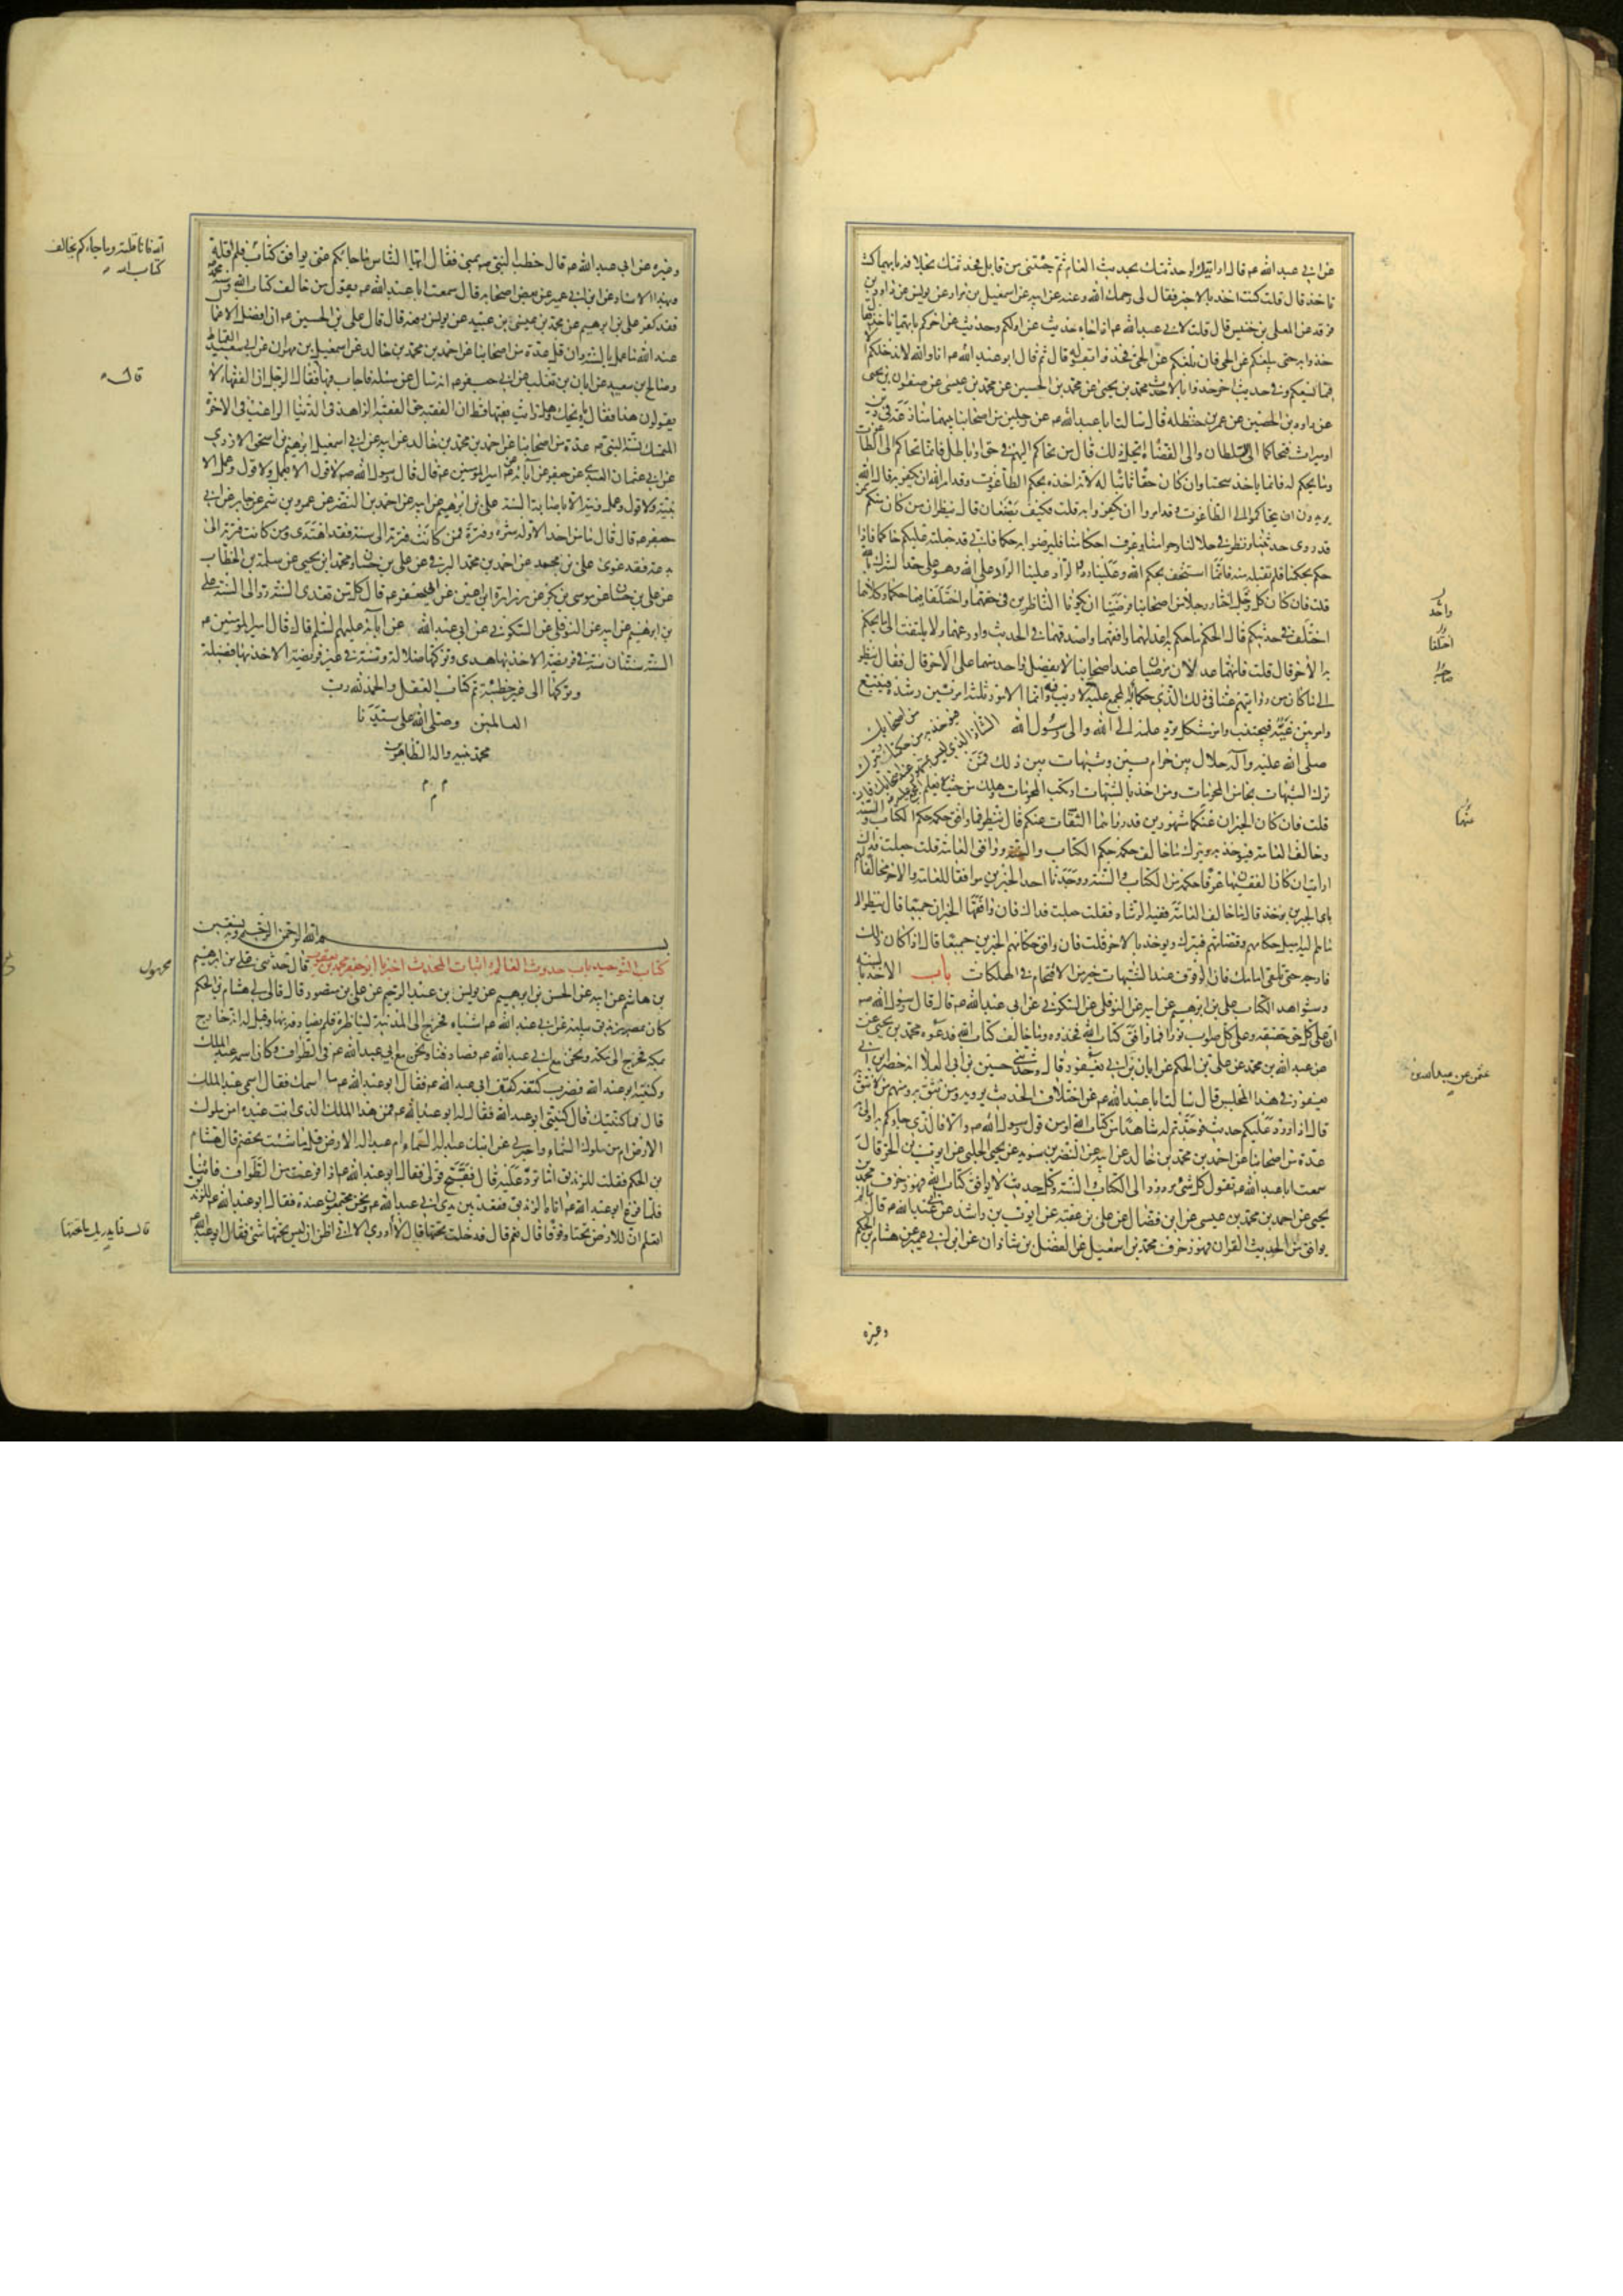 عن ابي عبد الله عم قال ارايتك لو حدثتك بحديث العام ثم جئتني من قابل فحدثتك بخلافه بايهما كنت
تاخذ قال قلت كنت اخذ بالاخير فقال لي رحمك الله وعنه عن ابيه عن اسمعيل بن مرار عن يونس عن داود بن
فرقد عن المعلى بن خنيس قال قلت لابي عبد الله عم اذا جاء حديث عن اولكم وحديث عن اخركم بايهما ناخذ فقال
خذوا به حتى يبلغكم عن الحي فان بلغكم عن الحي فخذوا بقوله قال ثم قال ابو عبد الله عم انا والله لا ندخلكم الا
فيما يسعكم وفي حديث اخر خذوا بالاحدث محمد بن يحيى عن محمد بن الحسين عن محمد بن عيسى عن صفوان بن يحيى
عن داود بن الحصين عن عمر بن حنظلة قال سالت ابا عبد الله عم عن رجلين من اصحابنا بينهما منازعة في دين
او ميراث فتحاكما الى السلطان والى القضاة ايحل ذلك قال من تحاكم اليهم في حق او باطل فانما تحاكم الى الطاغوت
وما يحكم له فانما ياخذ سحتا وان كان حقا ثابتا له لانه اخذه بحكم الطاغوت وقد امر الله ان يكفر به قال الله
يريدون ان يتحاكموا الى الطاغوت وقد امروا ان يكفروا به قلت فكيف يصنعان قال ينظران من كان منكم
قد روى حديثنا ونظر في حلالنا وحرامنا وعرف احكامنا فليرضوا به حكما فاني قد جعلته عليكم حاكما فاذا
حكم بحكمنا فلم يقبله منه فانما استخف بحكم الله وعلينا رد والراد علينا الراد على الله وهو على حد الشرك بالله
قلت فان كان كل رجل اختار رجلا من اصحابنا فرضيا ان يكونا الناظرين في حقهما واختلفا فيما حكما وكلاهما
اختلف في حديثكم قال الحكم ما حكم به اعدلهما وافقههما واصدقهما في الحديث واورعهما ولا يلتفت الى ما يحكم
به الاخر قال قلت فانهما عدلان مرضيان عند اصحابنا لا يفضل واحد منهما على الاخر قال فقال ينظر
الى ما كان من روايتهم عنا في ذلك الذي حكما به المجمع عليه لا ريب فيه وانما الامور ثلثة امر بين رشده فيتبع
وامر بين غيه فيجتنب وامر مشكل يرد علمه الى الله والى رسول الله
من اصحابك فيؤخذ به من حكمنا ويترك الشاذ الذي ليس بمشهور عند اصحابك فان المجمع عليه
صلى الله عليه وآله حلال بين حرام بين وشبهات بين ذلك فمن
ترك الشبهات نجا من المحرمات ومن اخذ بالشبهات ارتكب المحرمات وهلك من حيث لا يعلم
قلت فان كان الخبران عنكما مشهورين قد رواهما الثقات عنكم قال ينظر فما وافق حكمه حكم الكتاب والسنة
وخالف العامة فيؤخذ به ويترك ما خالف حكمه حكم الكتاب والسنة ووافق العامة قلت جعلت فداك
ارايت ان كان الفقيهان عرفا حكمه من الكتاب والسنة ووجدنا احد الخبرين موافقا للعامة والاخر مخالفا لهم
باي الخبرين يؤخذ قال ما خالف العامة ففيه الرشاد فقلت جعلت فداك فان وافقهما الخبران جميعا قال ينظر الى
ما هم اليه اميل حكامهم وقضاتهم فيترك ويؤخذ بالاخر قلت فان وافق حكامهم الخبرين جميعا قال اذا كان ذلك
فارجه حتى تلقى امامك فان الوقوف عند الشبهات خير من الاقتحام في الهلكات باب الاخذ بالسنة
وشواهد الكتاب علي بن ابرهيم عن ابيه عن النوفلي عن السكوني عن ابي عبد الله عم قال قال رسول الله صم
ان على كل حق حقيقة وعلى كل صواب نورا فما وافق كتاب الله فخذوه وما خالف كتاب الله فدعوه محمد بن يحيى عن
عن عبد الله بن محمد عن علي بن الحكم عن ابان بن ابي يعفور قال وحدثني حسين بن ابي العلا انه حضر ابن ابي
يعفور في هذا المجلس قال سالت ابا عبد الله عم عن اختلاف الحديث يرويه من نثق به ومنهم من لا نثق به
قال اذا ورد عليكم حديث فوجدتم له شاهدا من كتاب الله او من قول رسول الله صم والا فالذي جاءكم به اولى به
عدة من اصحابنا عن احمد بن محمد بن خالد عن ابيه عن النضر بن سويد عن يحيى الحلبي عن ايوب بن الحر قال
سمعت ابا عبد الله عم يقول كل شئ مردود الى الكتاب والسنة وكل حديث لا يوافق كتاب الله فهو زخرف محمد بن
يحيى عن احمد بن محمد بن عيسى عن ابن فضال عن علي بن عقبة عن ايوب بن راشد عن ابي عبد الله عم قال ما لم
يوافق من الحديث القران فهو زخرف محمد بن اسمعيل عن الفضل بن شاذان عن ابن ابي عمير عن هشام بن الحكم
وغيره
واحد
اختلفا
عنهما
وغيره عن ابي عبد الله عم قال خطب النبي صم بمنى فقال ايها الناس ما جاءكم عني يوافق كتاب الله فانا قلته
انه فانا قلته وما جاءكم يخالف
كتاب الله
وبهذا الاسناد عن ابن ابي عمير عن بعض اصحابه قال سمعت ابا عبد الله عم يقول من خالف كتاب الله وسنة محمد
فقد كفر علي بن ابرهيم عن محمد بن عيسى بن عبيد عن يونس رفعه قال قال علي بن الحسين عم ان افضل الاعمال
عند الله ما عمل بالسنة وان قل عدة من اصحابنا عن احمد بن محمد بن خالد عن اسمعيل بن مهران عن ابي سعيد القماط
وصالح بن سعيد عن ابان بن تغلب عن ابي جعفر عم انه سال عن مسئلة فاجاب فيها فقال الرجل ان الفقهاء لا
قال
يقولون هذا فقال يا ويحك وهل رايت فقيها قط ان الفقيه حق الفقيه الزاهد في الدنيا الراغب في الاخرة
المتمسك بسنة النبي صم عدة من اصحابنا عن احمد بن محمد بن خالد عن ابيه عن ابي اسمعيل ابرهيم بن اسحق الازدي
عن ابي عثمان العبدي عن جعفر عن آبائه عن امير المؤمنين عم قال قال رسول الله صم لا قول الا بعمل ولا قول وعمل الا
بنية ولا قول وعمل ونية الا باصابة السنة علي بن ابرهيم عن ابيه عن احمد بن النضر عن عمرو بن شمر عن جابر عن ابي
جعفر عم قال قال ما من احد الا وله شرة وفترة فمن كانت فترته الى سنة فقد اهتدى ومن كانت فترته الى
بدعة فقد غوى علي بن محمد عن احمد بن محمد البرقي عن علي بن حسان ومحمد بن يحيى عن سلمة بن الخطاب
عن علي بن حسان عن موسى بن بكر عن زرارة ابن اعين عن ابي جعفر عم قال كل من تعدى السنة رد الى السنة علي
بن ابرهيم عن ابيه عن النوفلي عن السكوني عن ابي عبد الله عن آبائه عليهم السلم قال قال امير المؤمنين عم
السنة سنتان سنة في فريضة الاخذ بها هدى وتركها ضلالة وسنة في غير فريضة الاخذ بها فضيلة
وتركها الى غير خطيئة تم كتاب العقل والحمد لله رب
العالمين وصلى الله على سيدنا
محمد نبيه واله الطاهرين
م م م
بسم الله الرحمن الرحيم وبه نستعين
كتاب التوحيد باب حدوث العالم واثبات المحدث اخبرنا ابو جعفر محمد بن يعقوب قال حدثني علي بن ابرهيم
بن هاشم عن ابيه عن الحسن بن ابرهيم عن يونس بن عبد الرحيم عن علي بن منصور قال قال لي هشام بن الحكم
كان بمصر زنديق يبلغه عن ابي عبد الله عم اشياء فخرج الى المدينة ليناظره فلم يصادفه بها وقيل له انه خارج
بمكة فخرج الى مكة ونحن مع ابي عبد الله عم فصادفنا ونحن مع ابي عبد الله عم في الطواف وكان اسمه عبد الملك
وكنيته ابو عبد الله فضرب كتفه كتف ابي عبد الله عم فقال ابو عبد الله عم ما اسمك فقال اسمي عبد الملك
قال فما كنيتك قال كنيتي ابو عبد الله فقال له ابو عبد الله عم فمن هذا الملك الذي انت عبده امن ملوك
الارض ام من ملوك السماء واخبرني عن ابنك عبد اله السماء ام عبد اله الارض قل ما شئت تخصم قال هشام
بن الحكم فقلت للزنديق اما ترد عليه قال فقبح قولي فقال ابو عبد الله عم اذا فرغت من الطواف فائتنا
فلما فرغ ابو عبد الله عم اتاه الزنديق فقعد بين يدي ابي عبد الله عم ونحن مجتمعون عنده فقال ابو عبد الله عم للزنديق
اتعلم ان للارض تحتا وفوقا قال نعم قال فدخلت تحتها قال لا
قال فما يدريك ما تحتها
قال لا ادري الا اني اظن ان ليس تحتها شئ فقال ابو عبد الله